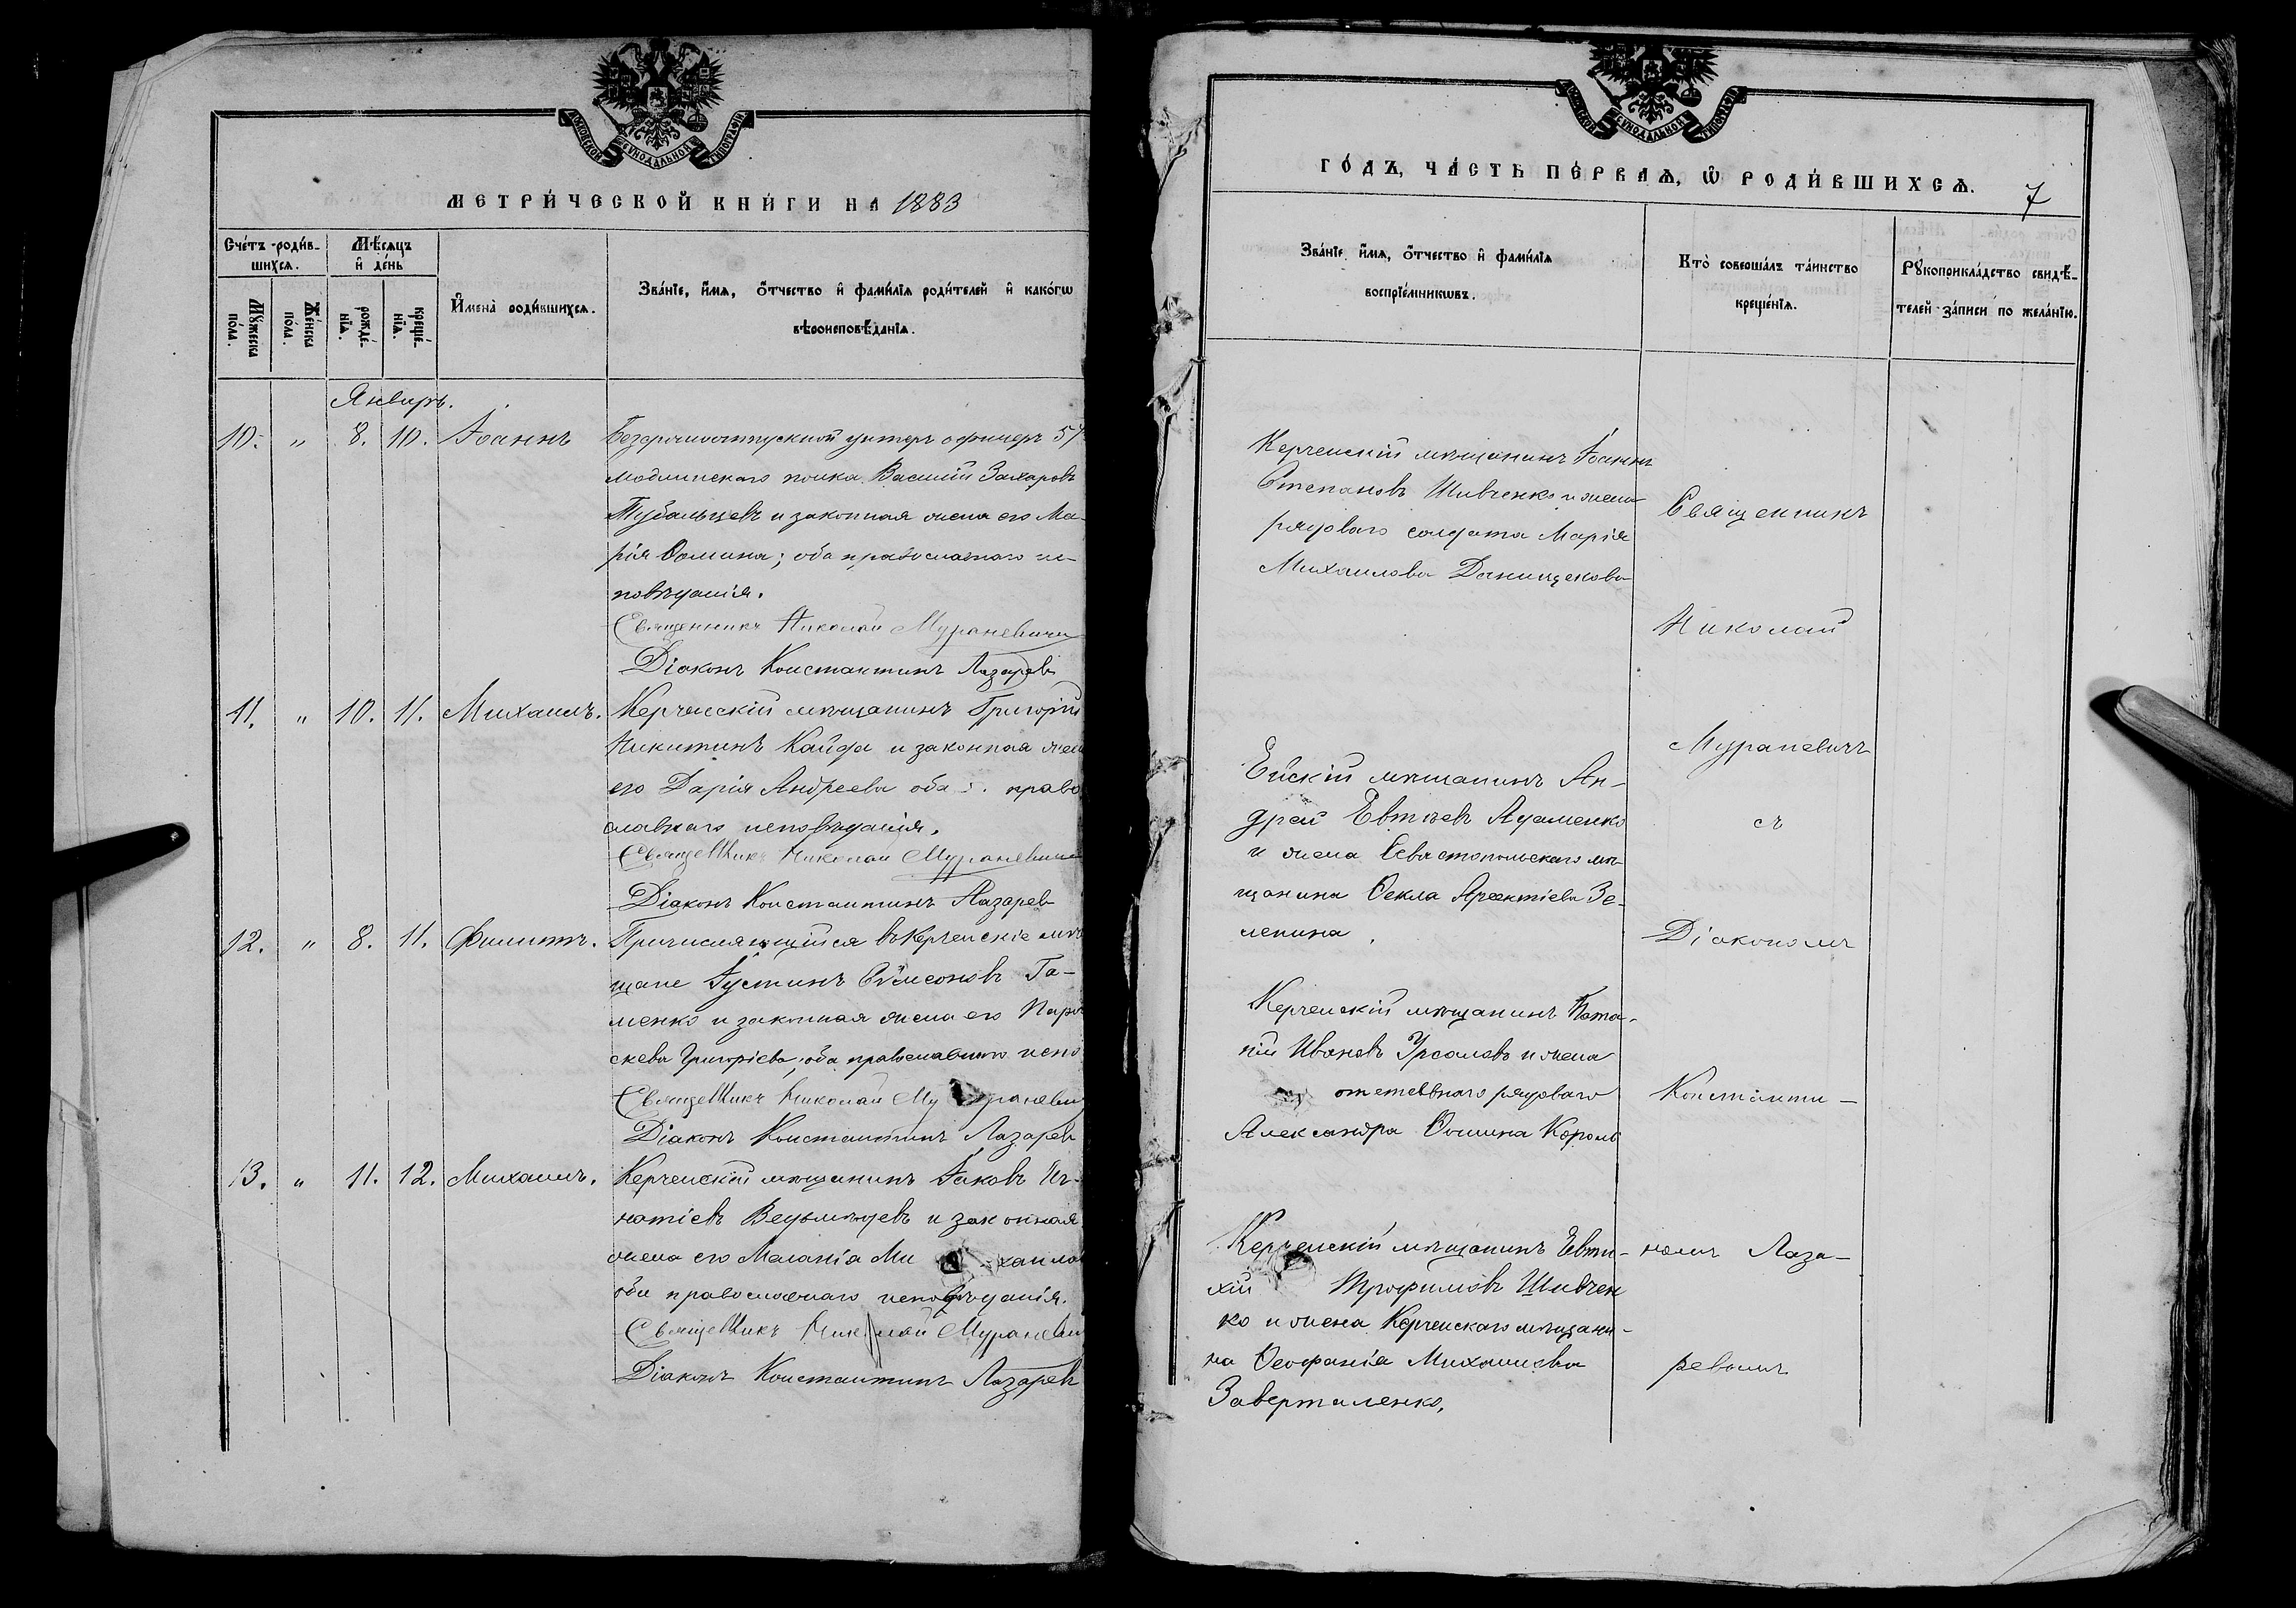 МОСКОВСКОЙ СѴНОДАЛЬНОЙ ТИПОГРАФІИ
МЕТРИ́ЧЕСКОЙ КНИ́ГИ НА 1883
Сче́тъ роди́в-
шихсѧ.
Мѣ́сѧцъ
и҆ де́нь
Мꙋ́жеска
по́ла.
Же́нска
по́ла.
рожде́-
нїѧ.
креще́-
нїѧ.
И҆мена̀ роди́вшихсѧ.
Зва́нїе, и҆́мѧ, ѻ҆́тчество и҆ фами́лїѧ роди́телей и҆ како́гѡ
вѣроисповѣ́данїѧ.
Январь.
10. " 8. 10. Іоаннъ
Безсрочноотпускной унтеръ офицеръ 57
Модлинскаго полка Василій Захаровъ
Тубальцевъ и законная жена его Ма-
рія Ѳомина; оба православнаго ис-
повѣданія.
Священникъ Николай Мураневичъ
Діаконъ Константинъ Лазаревъ
11. " 10. 11. Михаилъ.
Керченскій мѣщанинъ Григорій
Никитинъ Кайда и законная жена
его Дарія Андреева оба право
славнаго исповѣданія.
Священникъ Николай Мураневичъ
Діаконъ Константинъ Лазарев
12. " 8. 11. Филиппъ.
Причисляющійся въ Керченскіе мѣ
щане Іустинъ Сѵмеоновъ Га-
менко и законная жена его Пара
скева Григоріева; оба православнаго испо
Священникъ Николай Мураневич
Діаконъ Константинъ Лазарев
13. " 11. 12. Михаилъ.
Керченскій мѣщанинъ Іаковъ Иг-
натіевъ Ведьмѣдевъ и законная
жена его Меланія Михаилов
оба православнаго исповѣданія.
Священникъ Николай Мураневич
Діаконъ Константинъ Лазарев
МОСКОВСКОЙ СѴНОДАЛЬНОЙ ТИПОГРАФІИ
ГО́ДЪ, ЧА́СТЬ ПЕ́РВАѦ, Ѡ҆ РОДИ́ВШИХСѦ.
7
Зва́нїе, и҆́мѧ, ѻ҆́тчество и҆ фами́лїѧ
воспрїе́мникѡвъ.
Кто̀ соверша́лъ та́инство
креще́нїѧ.
Рꙋкоприкла́дство свидѣ́-
телей за́писи по жела́нїю.
Керченскій мѣщанинъ Іоаннъ
Степановъ Шивченко и жена
рядоваго солдата Марія
Михаилова Данищекова
Ейскій мѣщанинъ Ан-
дрей Евтѣевъ Адаменко
и жена Севастопольскаго мѣ-
щанина Ѳекла Арсентіева Зе-
ленина.
Керченскій мѣщанинъ Пата-
пій Ивановъ Урсаловъ и жена
отставнаго рядоваго
Александра Ѳомина Король
Керченскій мѣщанинъ Евти-
хій Трофимовъ Шивчен
ко и жена Керченскаго мѣщани-
на Ѳеофанія Михаилова
Заверталенко.
Священникъ
Николай
Мураневичъ
съ
Діакономъ
Константи-
номъ Лаза-
ревымъ